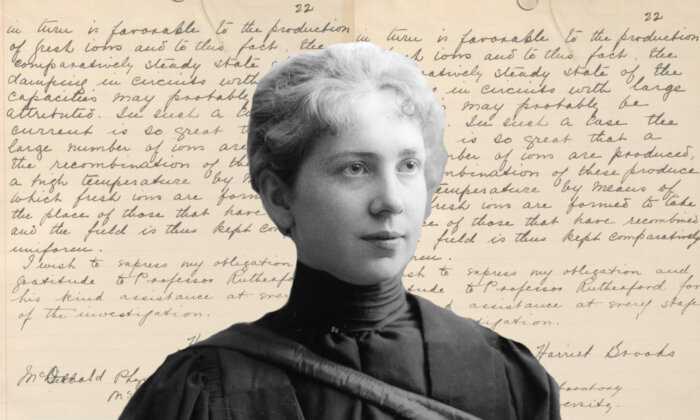 22
in turn is favorable to the production
of fresh ions and to this fact, the
comparatively steady state
damping in circuits with
capacities may probably
attributed. In such a
current is so great
large number of ions are
the recombination of
a high temperature by
which fresh ions are formed
the place of those that have
and the field is thus kept
uniform.
I wish to express my obligation
gratitude to Professor Rutherford
his kind assistance at every
of the investigation.
22
in turn is favorable to the production
ions and to this fact, the
steady state of the
in circuits with large
may probably be
In such a case the
is so great that a
of ions are produced.
of these produce
temperature by means of
are formed to take
of those that have recombined
field is thus kept comparatively
to express my obligation and
to Professor Rutherford for
assistance at every
Harriet Brooks